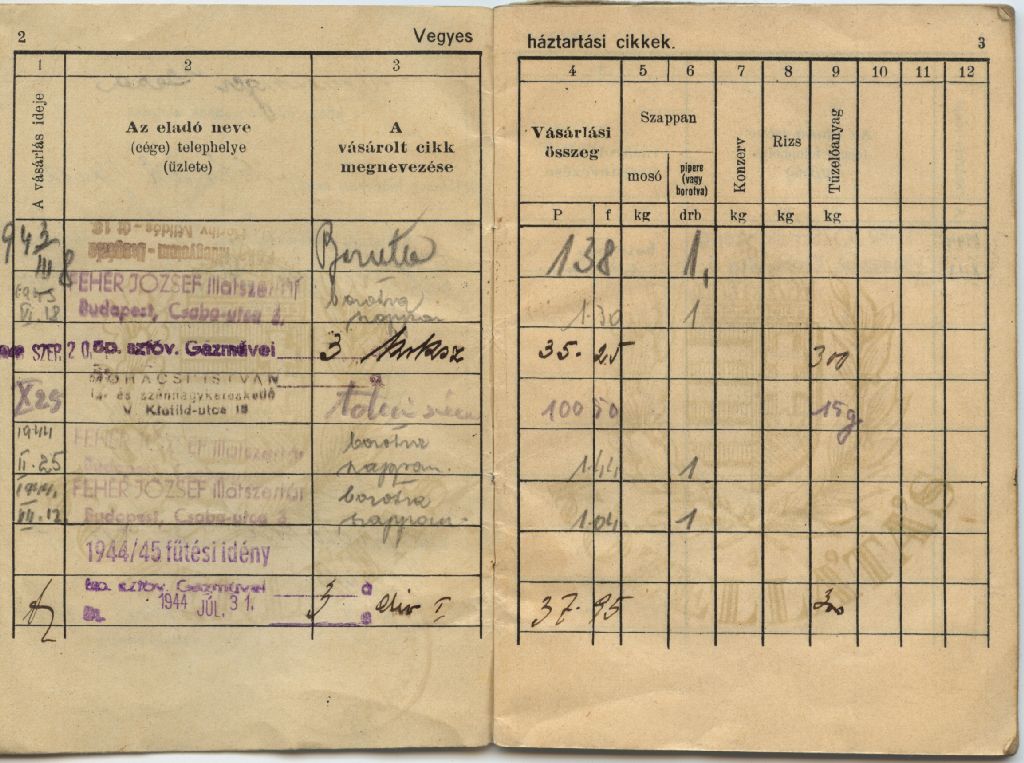 2 Vegyes
háztartási cikkek. 3
1 2 3
4 5 6 7 8 9 10 11 12
A vásárlás ideje
Az eladó neve
(cége) telephelye
(üzlete)
A
vásárolt cikk
megnevezése
Vásárlási
összeg
Szappan
mosó
pipere
(vagy
borotva)
Konzerv
Rizs
Tüzelőanyag
P f kg drb kg kg kg
943
III 8
138 1,
FEHÉR JÓZSEF Illatszertár
Budapest, Csaba-utca 3.
borotva
szappan
130 1
SZEP. 20. Bp. szföv. Gázművei 3 koksz 35.25 300
X 29
MOHÁCSI ISTVÁN
fa- és szénnagykereskedő
V. Klotild-utca 18
100 50 15 q
1944
II. 25
FEHÉR JÓZSEF Illatszertár
Budapest, Csaba-utca 3.
borotva
szappan.
144 1
1944.
III. 12
FEHÉR JÓZSEF Illatszertár
Budapest, Csaba-utca 3.
borotva
szappan.
104 1
1944/45 fűtési idény
Bp. szföv. Gázművei
1944 JÚL. 31.
3 dió I
37.95 300